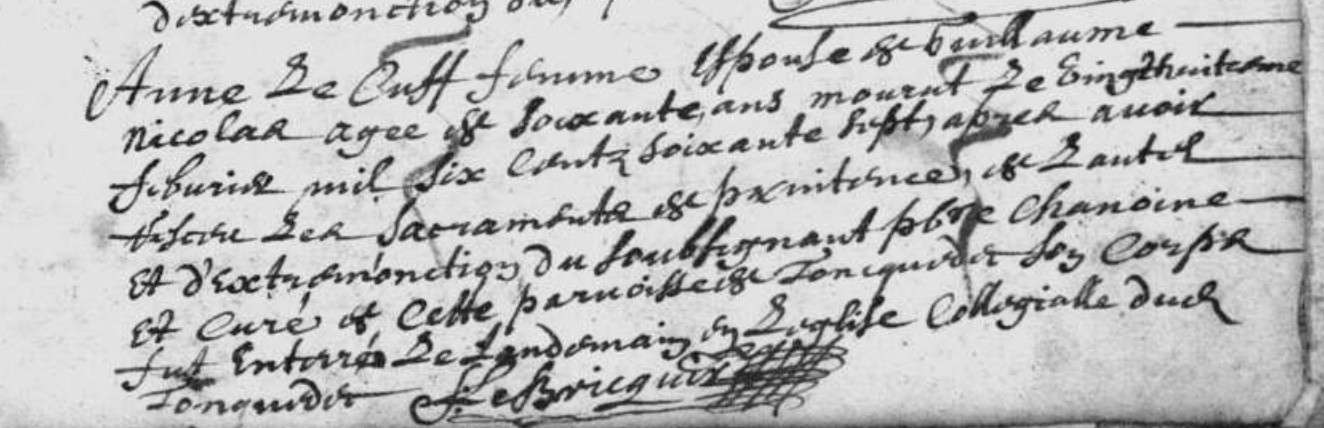 d'extremonction
Anne Le Cuff femme Espouse de Guillaume
Nicolas agee de Soixante ans mourut Le Vingthuiteme
feburier mil six Centz soixante sept, apres avoir
Les Sacraments de pœnitence, de L'autel
Et d'Extremonction du soubsignant pbre Chanoine
Et Curé de Cette parroisse de Toncquedec son Corps
fut Enterré Le Landemain en L'eglise Collegialle dud
Toncquedec